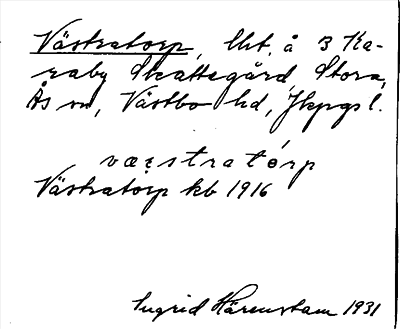 Västratorp, lht. å 3 Ka-
raby Skattegård, Stora,
Ås sn, Västbo hd, Jkpgs l.
væstratorp
Västratorp kb 1916
Ingrid Härenstam 1931